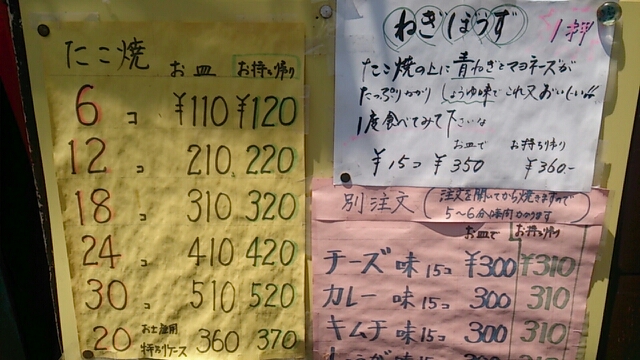 たこ焼 お皿 お持ち帰り
6コ ¥110 ¥120
12コ 210 220
18コ 310 320
24コ 410 420
30コ 510 520
20 お土産用 持ち帰りケース 360 370
ねぎぼうず
たこ焼の上に青ねぎとマヨネーズが
たっぷりながり しょうゆ味でこれ又おいしい!!
1度食べてみて下さいな
お皿で お持ち帰り
¥15コ ¥350 ¥360-
別注文(注文を聞いてから焼きますので
5~6分時間かかります)
お皿で お持ち帰り
チーズ味 15コ ¥300 ¥310
カレー味 15コ 300 310
キムチ味 15コ 300 310